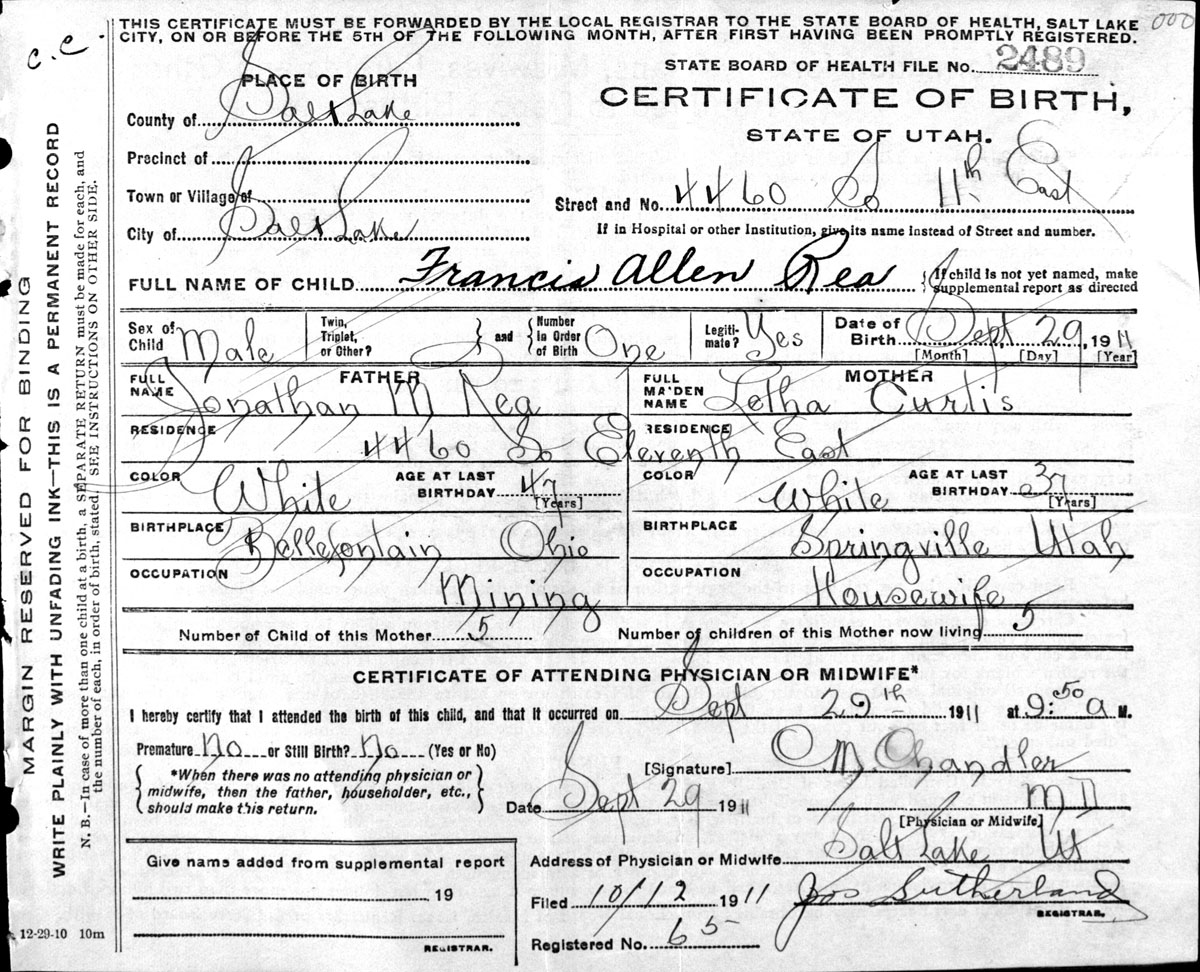 THIS CERTIFICATE MUST BE FORWARDED BY THE LOCAL REGISTRAR TO THE STATE BOARD OF HEALTH, SALT LAKE
CITY, ON OR BEFORE THE 5TH OF THE FOLLOWING MONTH, AFTER FIRST HAVING BEEN PROMPTLY REGISTERED.
000
C.C.
STATE BOARD OF HEALTH FILE No. 2489
PLACE OF BIRTH
CERTIFICATE OF BIRTH,
STATE OF UTAH.
County of Salt Lake
Precinct of
Town or Village of
Street and No. 4460 So 11th East
City of Salt Lake
If in Hospital or other Institution, give its name instead of Street and number.
FULL NAME OF CHILD Francis Allen Rea {If child is not yet named, make
supplemental report as directed
Sex of Child Male
Twin, Triplet, or Other? } and { Number In Order of Birth One
Legiti-mate? Yes
Date of Birth Sept 29, 1911
[Month] [Day] [Year]
FATHER
FULL NAME Jonathan M Rea
MOTHER
FULL MAIDEN NAME Letha Curtis
RESIDENCE RESIDENCE
4460 So Eleventh East
COLOR White AGE AT LAST BIRTHDAY 47 [Years]
COLOR White AGE AT LAST BIRTHDAY 37 [Years]
BIRTHPLACE Bellefontain Ohio
BIRTHPLACE Springville Utah
OCCUPATION Mining
OCCUPATION Housewife
Number of Child of this Mother 5 Number of children of this Mother now living 5
CERTIFICATE OF ATTENDING PHYSICIAN OR MIDWIFE*
I hereby certify that I attended the birth of this child, and that it occurred on Sept 29th 1911 at 9:50 a M.
Premature No or Still Birth? No (Yes or No)
*When there was no attending physician or
midwife, then the father, householder, etc.,
should make this return.
[Signature] O M Chandler
Date Sept 29 1911
M D
[Physician or Midwife]
Give name added from supplemental report
19
REGISTRAR.
Address of Physician or Midwife Salt Lake Ut
Filed 10/12 1911 Jos Sutherland
REGISTRAR.
Registered No. 65
12-29-10 10m
MARGIN RESERVED FOR BINDING
WRITE PLAINLY WITH UNFADING INK—THIS IS A PERMANENT RECORD
N. B.—In case of more than one child at a birth, a SEPARATE RETURN must be made for each, and
the number of each, in order of birth, stated. SEE INSTRUCTIONS ON OTHER SIDE.